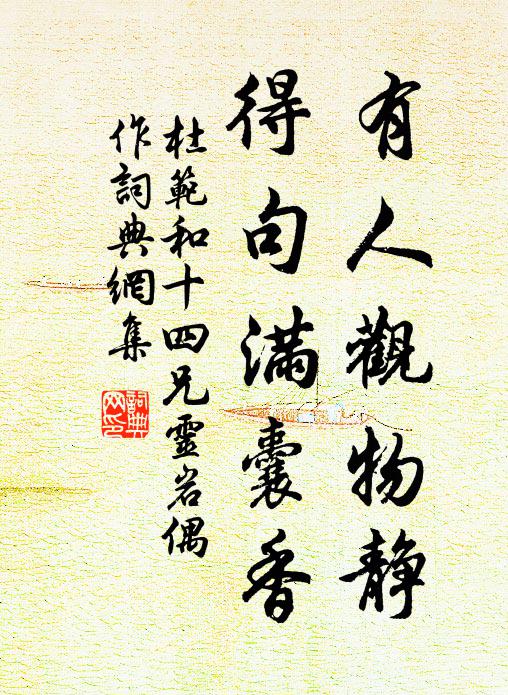 有人觀物静
得句滿囊香
杜範和十四兄靈岩偶
作詞典網集
詞典
网印